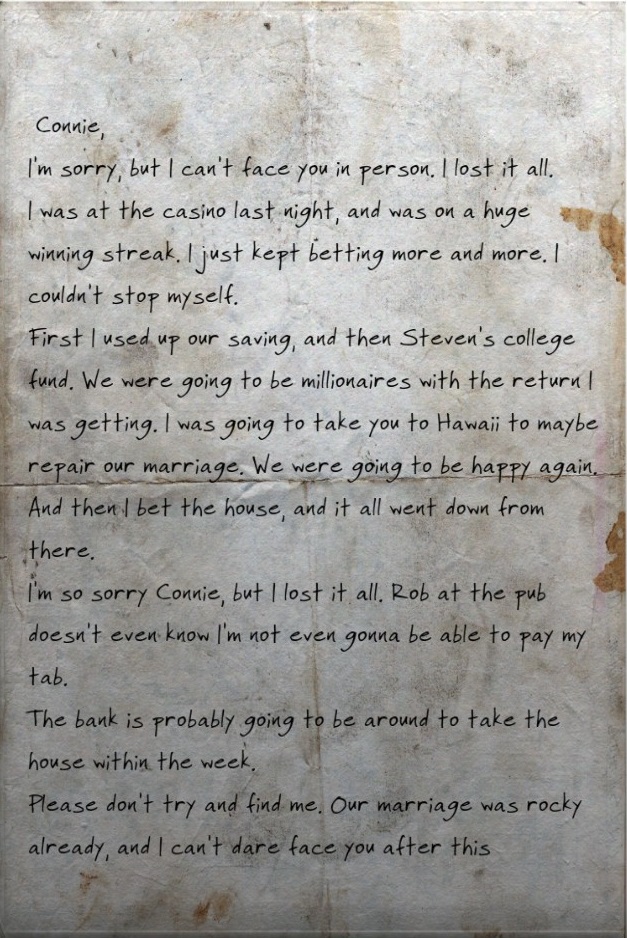 Connie,
I'm sorry, but I can't face you in person. I lost it all.
I was at the casino last night, and was on a huge
winning streak. I just kept betting more and more. I
couldn't stop myself.
First I used up our saving, and then Steven's college
fund. We were going to be millionaires with the return I
was getting. I was going to take you to Hawaii to maybe
repair our marriage. We were going to be happy again.
And then I bet the house, and it all went down from
there.
I'm so sorry Connie, but I lost it all. Rob at the pub
doesn't even know I'm not even gonna be able to pay my
tab.
The bank is probably going to be around to take the
house within the week.
Please don't try and find me. Our marriage was rocky
already, and I can't dare face you after this